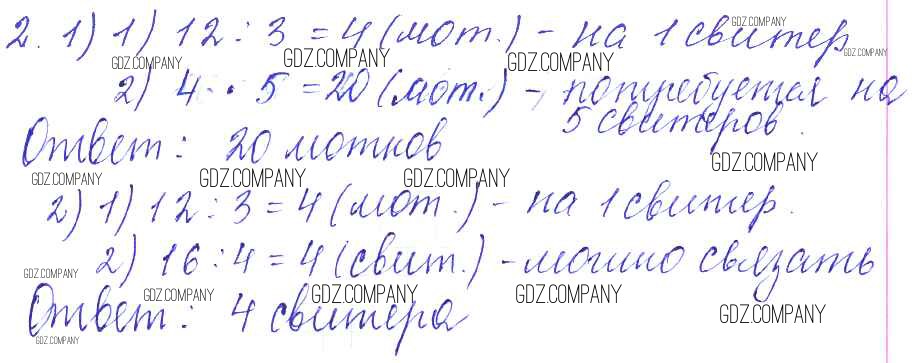 2. 1) 1) 12 : 3 = 4 (мот.) - на 1 свитер
GDZ.COMPANY GDZ.COMPANY GDZ.COMPANY GDZ.COMPANY GDZ.COMPANY
2) 4 · 5 = 20 (мот.) - потребуется на
5 свитеров.
Ответ: 20 мотков
GDZ.COMPANY
GDZ.COMPANY GDZ.COMPANY GDZ.COMPANY
2) 1) 12 : 3 = 4 (мот.) - на 1 свитер.
2) 16 : 4 = 4 (свит.) - можно связать
GDZ.COMPANY
GDZ.COMPANY GDZ.COMPANY GDZ.COMPANY
Ответ: 4 свитера
GDZ.COMPANY
GDZ.COMPANY